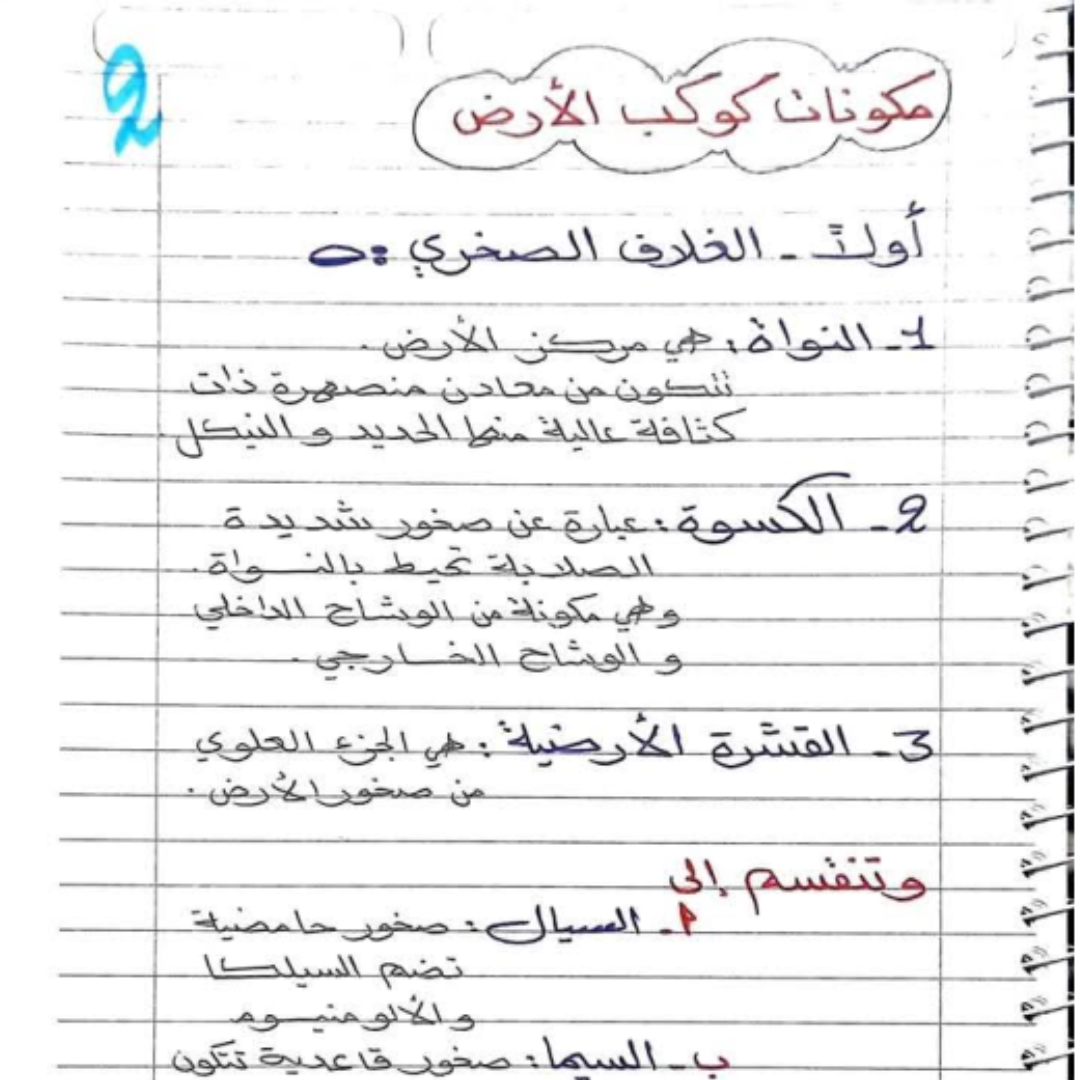 2
مكونات كوكب الأرض
أولاً - الغلاف الصخري :
1- النواة : هي مركز الأرض .
تتكون من معادن منصهرة ذات
كثافة عالية منها الحديد و النيكل
2- الكسوة : عبارة عن صخور شديدة
الصلابة تحيط بالنواة .
وهي مكونة من الوشاح الداخلي
و الوشاح الخارجي .
3- القشرة الأرضية : هي الجزء العلوي
من صخور الأرض .
وتنقسم إلى
أ- السيال : صخور حامضية
تضم السيلكا
والألومنيوم
ب- السيما : صخور قاعدية تتكون